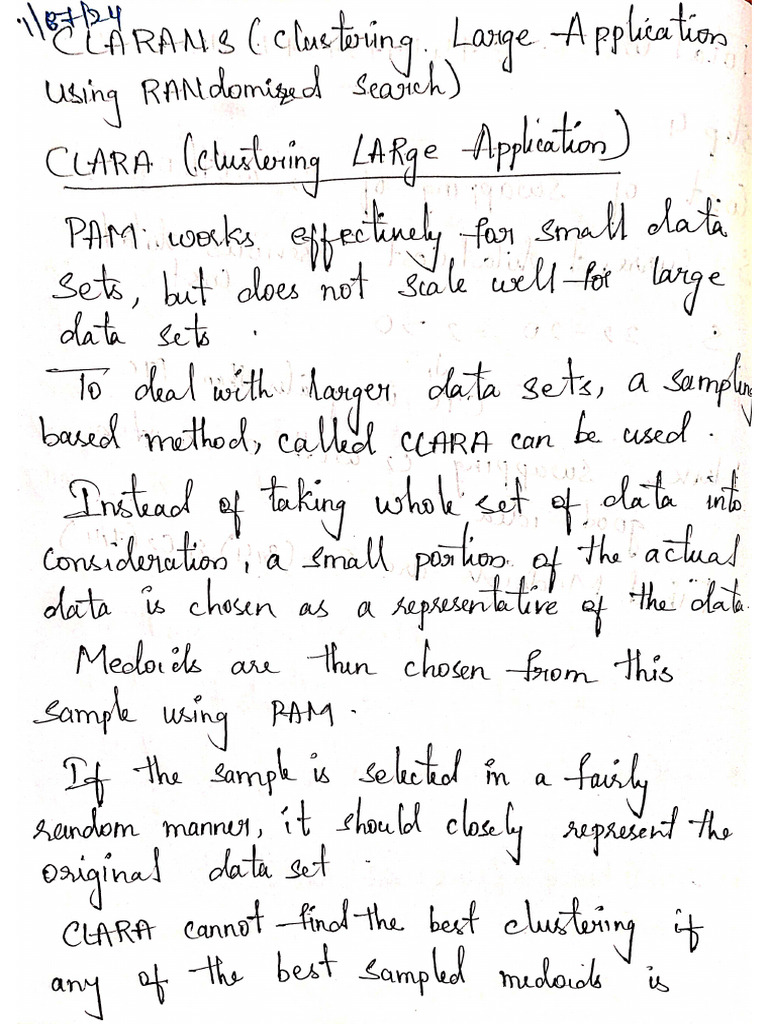 CLARANS (Clustering Large Application
using RANdomized search)
CLARA (clustering LARge Application)
PAM works effectively for small data
sets, but does not scale well for large
data sets.
To deal with larger data sets, a sampling
based method, called CLARA can be used.
Instead of taking whole set of data into
consideration, a small portion of the actual
data is chosen as a representative of the data.
Medoids are then chosen from this
sample using PAM.
If the sample is selected in a fairly
random manner, it should closely represent the
original data set.
CLARA cannot find the best clustering if
any of the best sampled medoids is